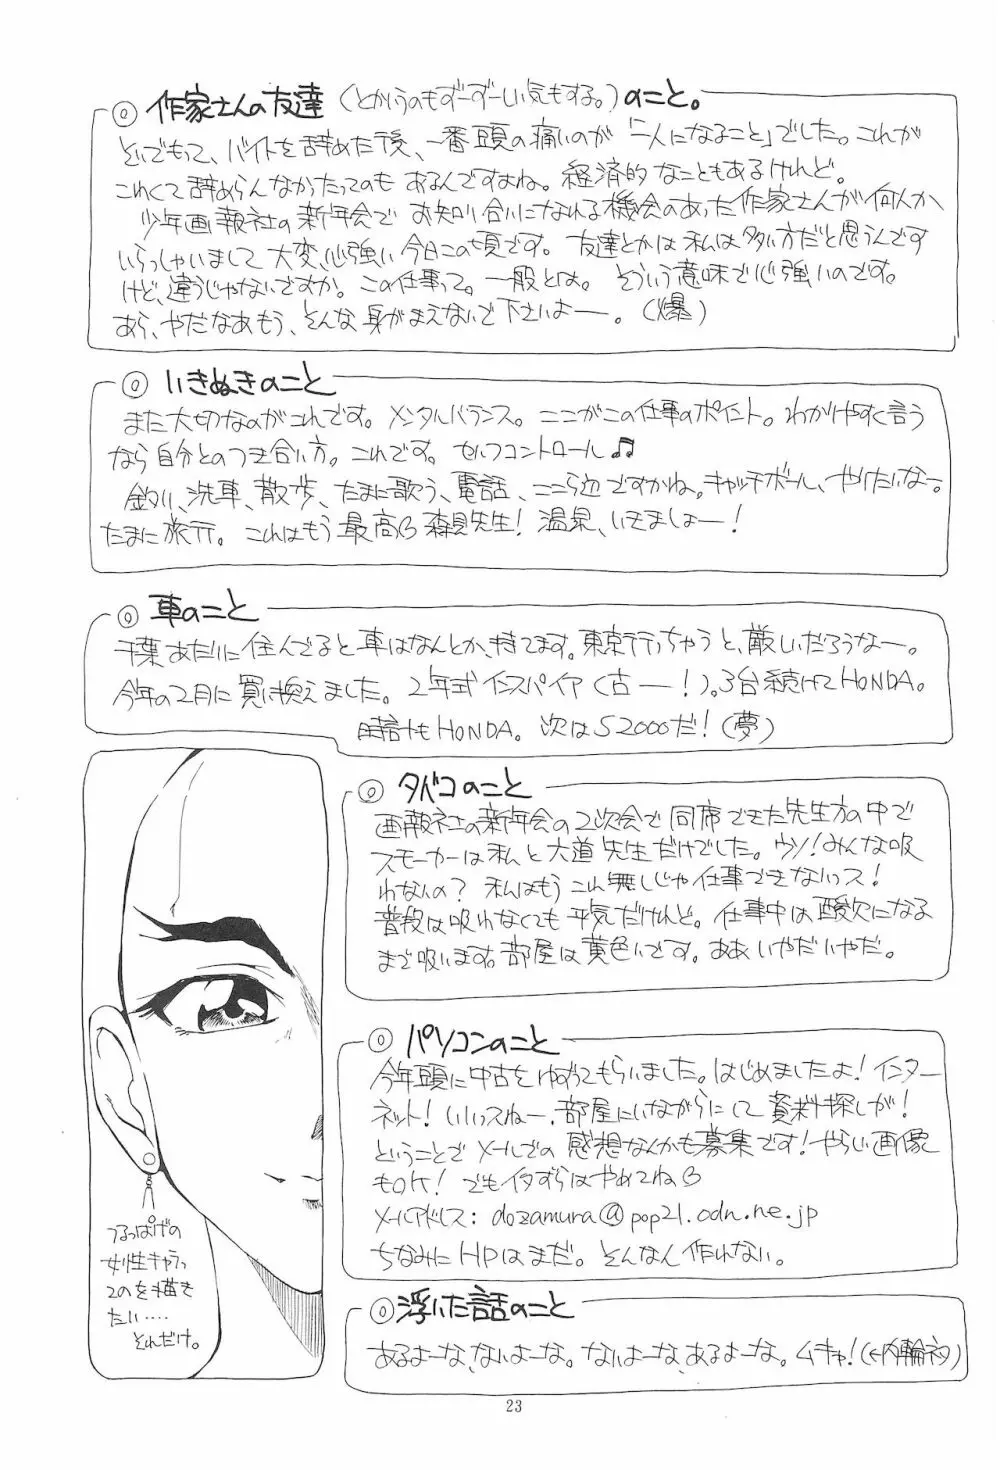 ◎ 作家さんの友達(とかいうのもずーずーしい気もする。)のこと。
そいでもって、バイトを辞めた後、一番頭の痛いのが「一人になること」でした。これが
これくて辞めらんなかったってのもあるんですよね。経済的なこともあるけれど。
少年画報社の新年会でお知り合いになれる機会のあった作家さんが何人か
いらっしゃいまして大変、心強い今日この頃です。友達とかは私は多い方だと思うんです
けど、違うじゃないですか。この仕事って。一般とは。そういう意味で心強いのです。
あら、やだなあもう、そんな身がまえないで下さいよー。(爆)
◎ いきぬきのこと
また大切なのがこれです。メンタルバランス。ここがこの仕事のポイント。わかりやすく言う
なら自分とのつき合い方。これです。セルフコントロール♫
釣り、洗車、散歩、たまに歌う、電話、ここら辺ですかね。キャッチボール、やりたいなー。
たまに旅行。これはもう最高 森見先生!温泉、いきましょー!
◎ 車のこと
千葉あたりに住んでると車はなんとか、持てます。東京行っちゃうと、厳しいだろうなー。
今年の2月に買い換えました。2年式インスパイア(古ー!)。3台続けてHONDA。
時計もHONDA。次はS2000だ!(夢)
◎ タバコのこと
画報社の新年会の2次会で同席できた先生方の中で
スモーカーは私と大道先生だけでした。ウソ!みんな吸
わないの?私はもうこれ無しじゃ仕事できないっス!
普段は吸わなくても平気だけれど。仕事中は酸欠になる
まで吸います。部屋は黄色いです。ああいやだいやだ。
◎ パソコンのこと
今年頭に中古をゆずってもらいました。はじめましたよ!インター
ネット!いいっスねー、部屋にいながらにして資料探しが!
ということでメールでの感想なんかも募集です!やらしい画像
もOK!でもイタずらはやめてね
メールアドレス: dozamura@pop21.odn.ne.jp
ちなみにHPはまだ。そんなん作れない。
つるっぱげの
女性キャラっ
てのを描き
たい……
それだけ。
◎ 浮いた話のこと
あるよーな、ないよーな。ないよーな、あるよーな。ムキャ!(←内輪ネタ)
23